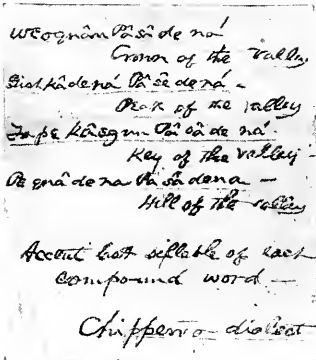 Weoquân Pâ sâ de ná
Crown of the Valley
Gish kâ de ná Pâ sâ de ná -
Peak of the Valley
Tape Kâegun Pâ sâ de ná
Key of the Valley
Pe quâ de na Pâ sâ de na -
Hill of the valley
Accent last sillable of each
compound word -
Chippewa dialect